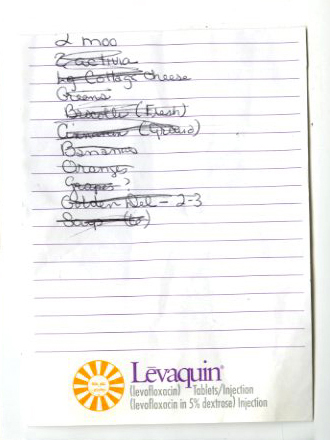 2 moo
2 activia
Lg Cottage cheese
Greens
Broccoli (Fresh)
Cinnamon (Ground)
Bananas
Oranges
Grapes ?
Golden Del - 2-3
Soup (6)
Lēvaquin®
(levofloxacin) Tablets/Injection
(levofloxacin in 5% dextrose) Injection